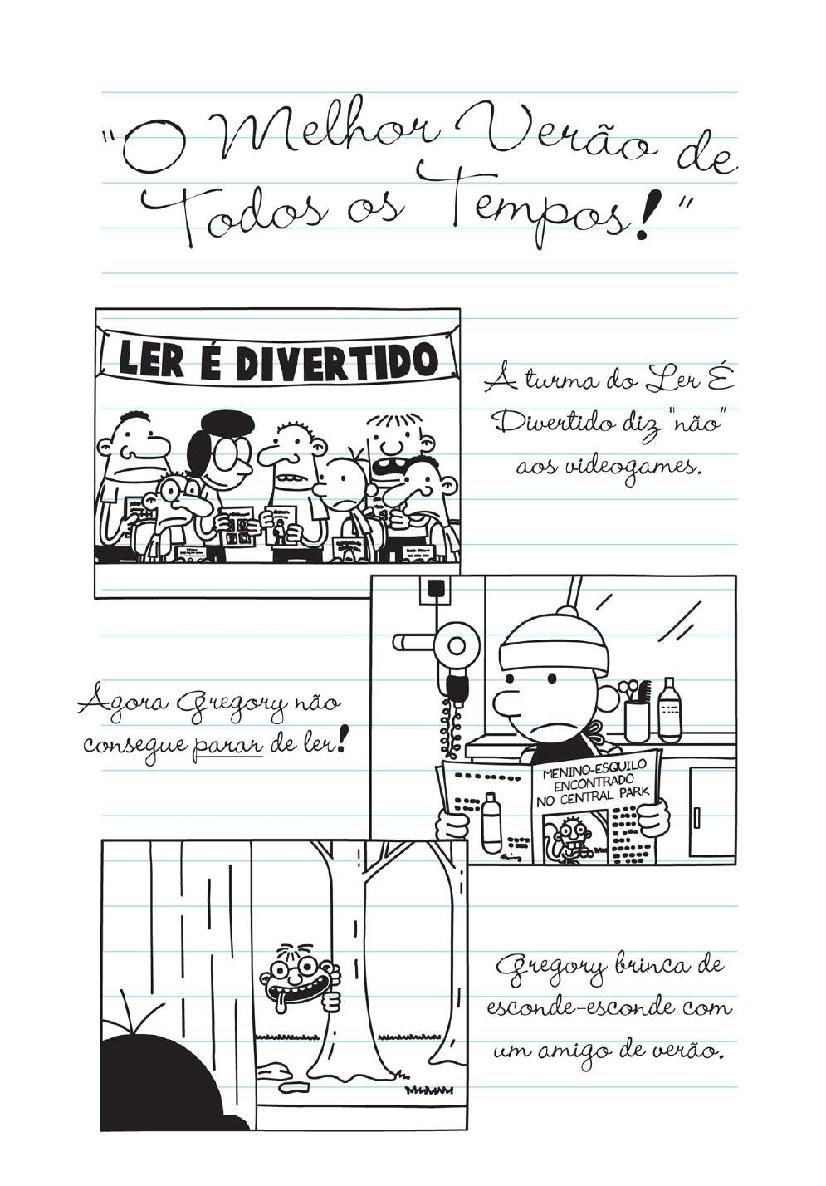 "O Melhor Verão de
Todos os Tempos!"
LER É DIVERTIDO
A turma do Ler É
Divertido diz "não"
aos videogames.
Agora Gregory não
consegue parar de ler!
MENINO-ESQUILO
ENCONTRADO
NO CENTRAL PARK
Gregory brinca de
esconde-esconde com
um amigo de verão.